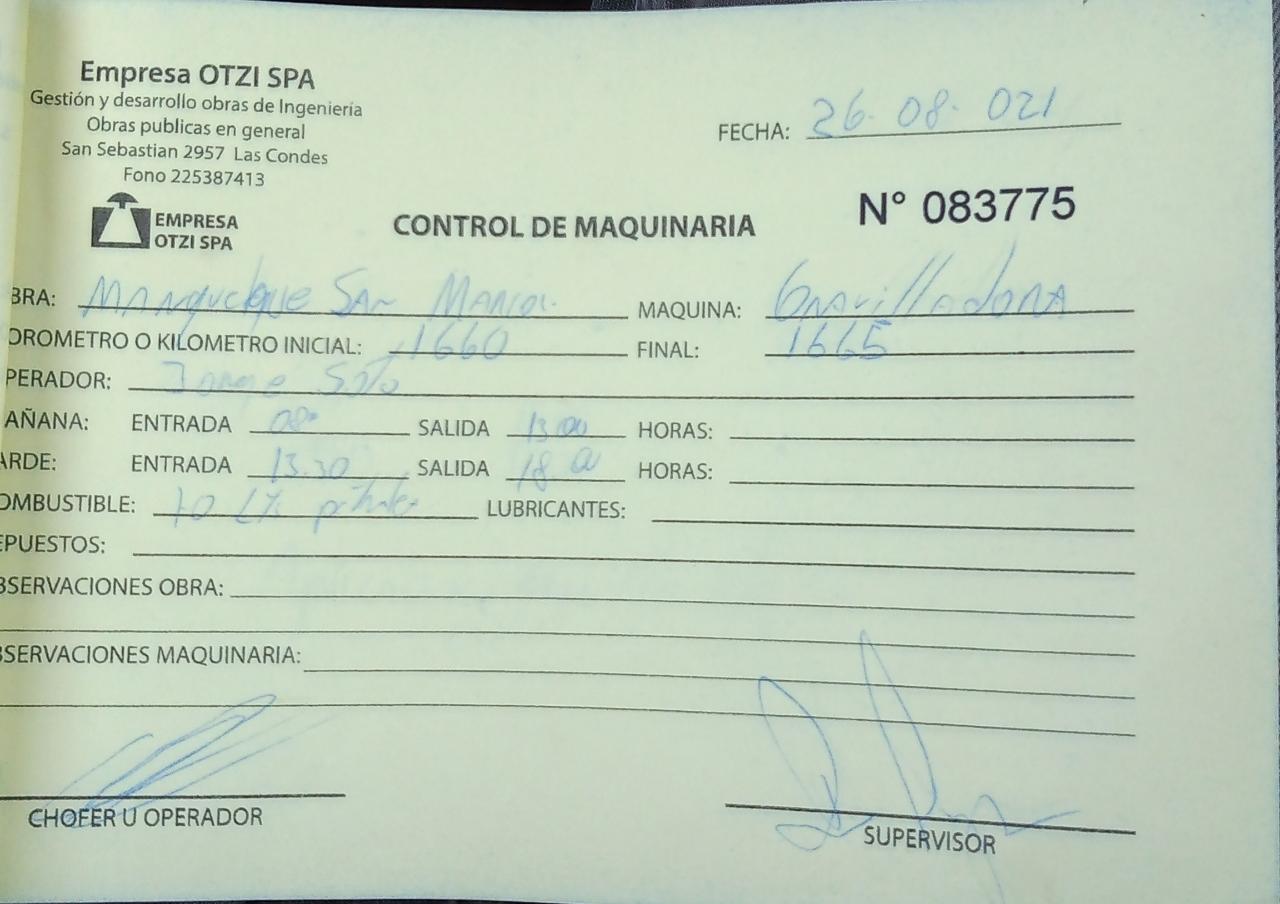 Empresa OTZI SPA
Gestión y desarrollo obras de Ingeniería
Obras publicas en general
San Sebastian 2957 Las Condes
Fono 225387413
FECHA: 26.08.021
EMPRESA
OTZI SPA
CONTROL DE MAQUINARIA
N° 083775
BRA: SAN MAQUINA: Gravilladora
OROMETRO O KILOMETRO INICIAL: 1660 FINAL: 1665
PERADOR: Jorge Soto
AÑANA: ENTRADA 08 SALIDA 13 00 HORAS:
ARDE: ENTRADA 13.30 SALIDA 18 00 HORAS:
OMBUSTIBLE: LUBRICANTES:
EPUESTOS:
BSERVACIONES OBRA:
BSERVACIONES MAQUINARIA:
CHOFER U OPERADOR
SUPERVISOR